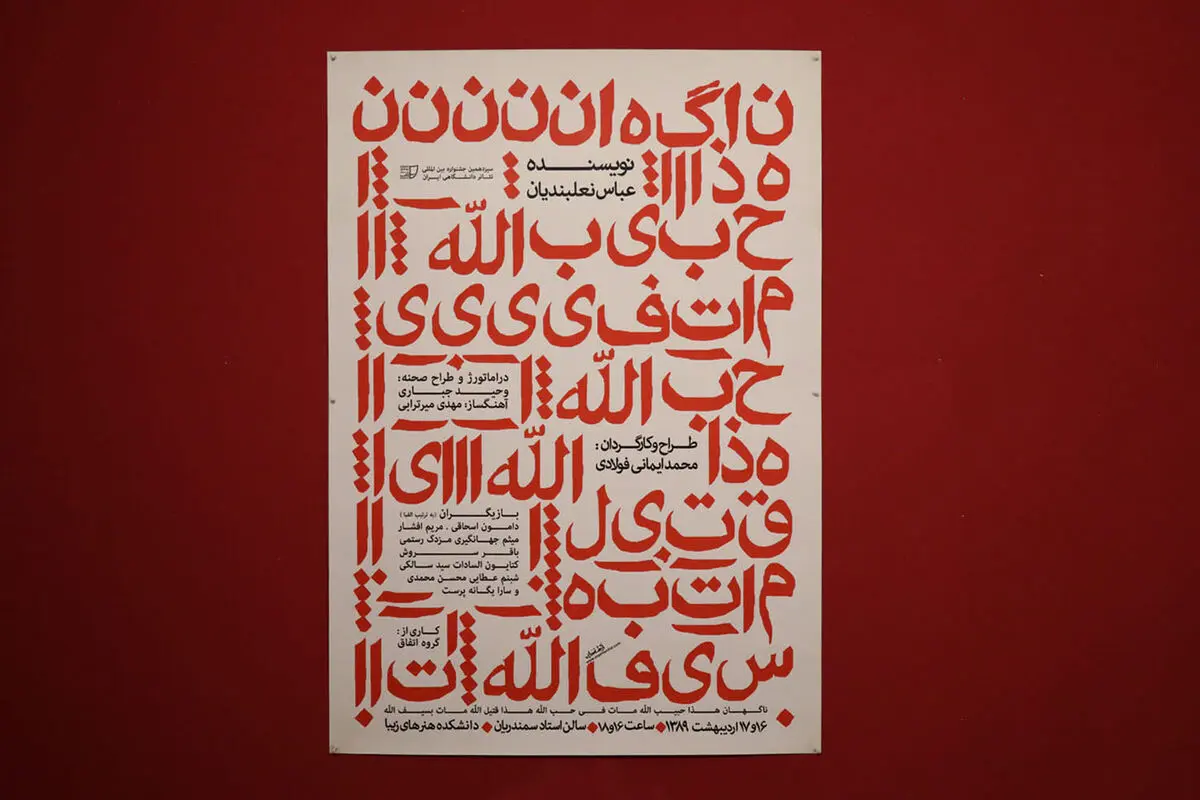 ناگهاننننن
هذااا
نویسنده
عباس نعلبندیان
سیزدهمین جشنواره بین المللی
تئاتر دانشگاهی ایران
حبیب الله
مات فی ی ی ی
حب الله
دراماتورژ و طراح صحنه:
وحید جباری
آهنگساز: مهدی میرترابی
هذا
طراح و کارگردان:
محمد ایمانی فولادی
الله
قتیل
بازیگران (به ترتیب الفبا)
دامون اسحاقی . مریم افشار
میثم جهانگیری مزدک رستمی
باقر سروش
کتایون السادات سید سالکی
شبنم عطایی محسن محمدی
و سارا یگانه پرست
مات به
کاری از:
گروه اتفاق
سیف الله
ناگهان هذا حبیب الله مات فی حب الله هذا قتیل الله مات بسیف الله
۱۶و۱۷ اردیبهشت ۱۳۸۹ ساعت ۱۶و۱۸ سالن استاد سمندریان دانشکده هنرهای زیبا